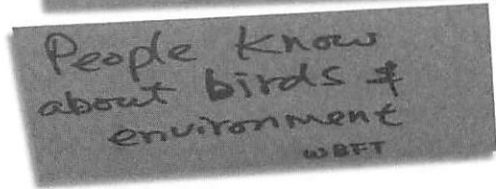 People know
about birds &
environment
WBFT